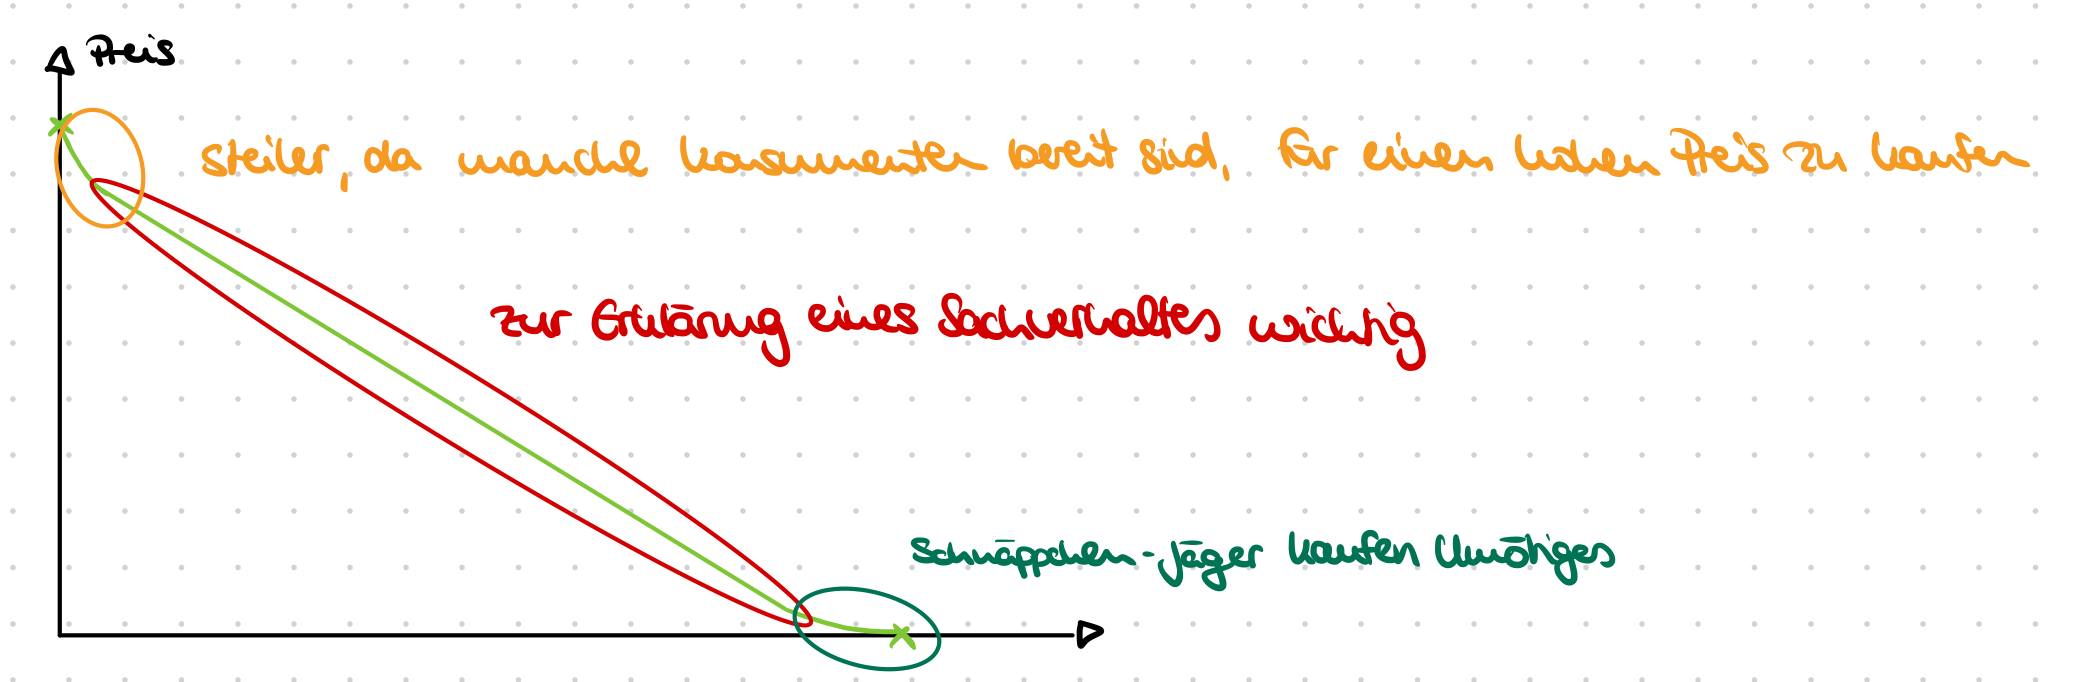 Preis
steiler, da manche Konsumenten bereit sind, für einen hohen Preis zu kaufen
zur Erklärung eines Sachverhaltes wichtig
Schnäppchen-Jäger kaufen Unnötiges